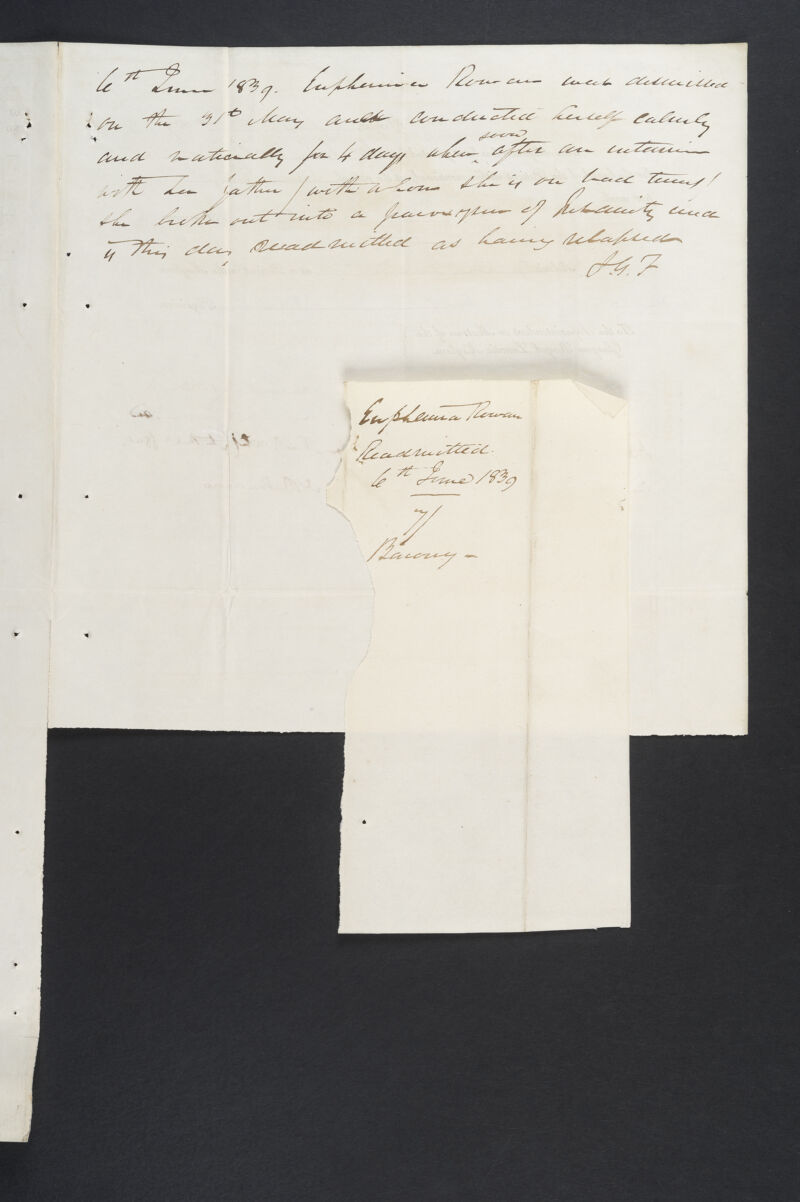 6th June 1839. Euphemia Rowan was dismissed
on the 31st May and conducted herself calmly
and rationally for 4 days when soon after an interview
with her father (with whom she is on bad terms)
she broke out into a paroxysm of Insanity and
is this day readmitted as having relapsed
J. G. F
Euphemia Rowan
Readmitted
6th June 1839
7/
Barony